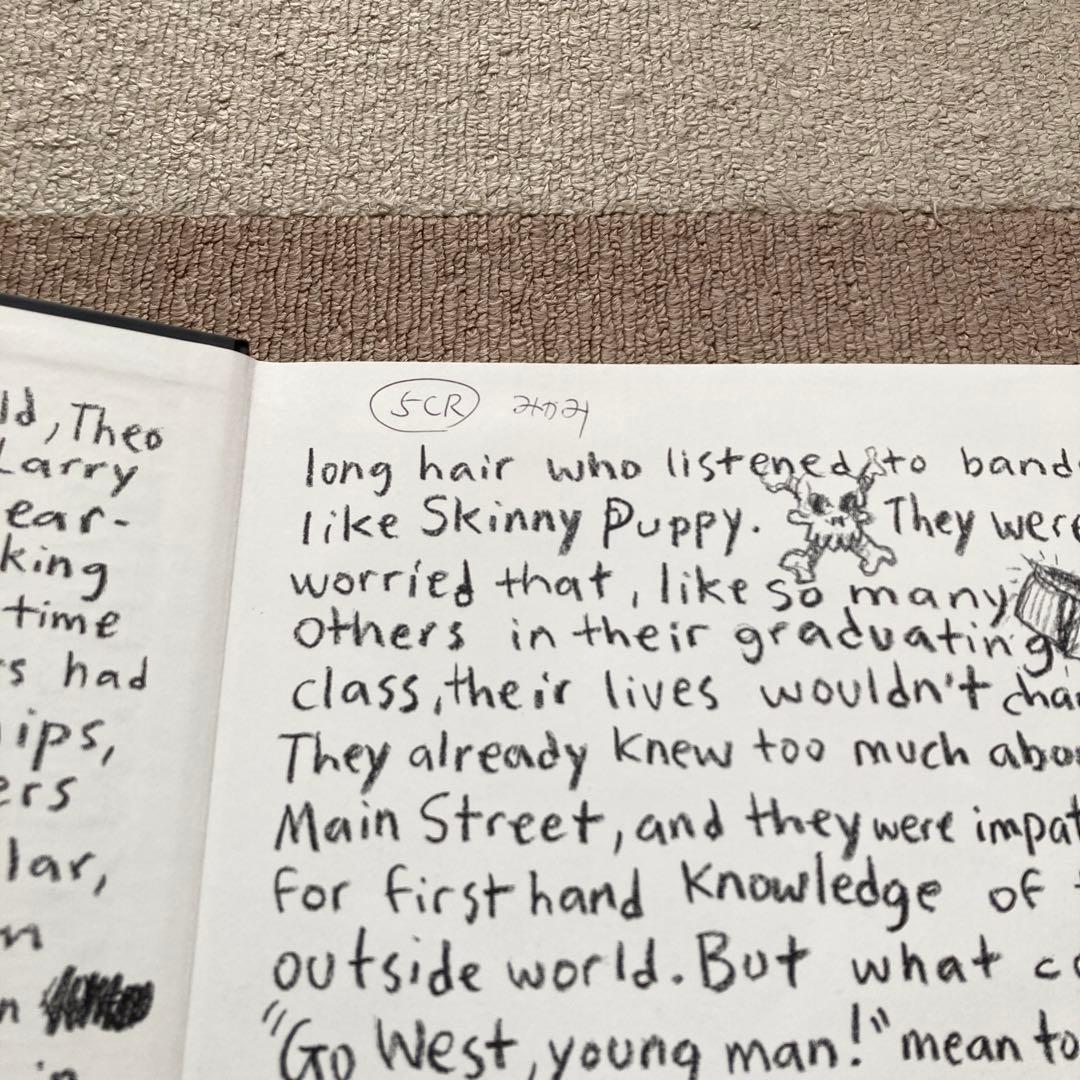 ld, Theo
Larry
ear-
king
time
s had
ips,
ers
lar,
n
n
in
5CR みかみ
long hair who listened to bands
like Skinny Puppy. They were
worried that, like so many
others in their graduating
class, their lives wouldn't chan
They already knew too much abou
Main Street, and they were impat
for firsthand knowledge of t
outside world. But what co
"Go West, young man!" mean to